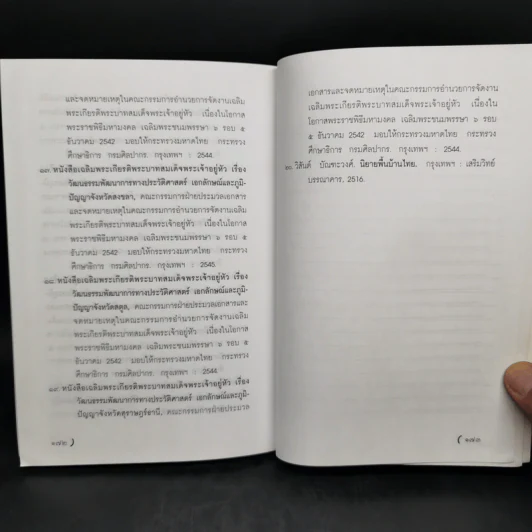 และจดหมายเหตุในคณะกรรมการอำนวยการจัดงานเฉลิม
พระเกียรติพระบาทสมเด็จพระเจ้าอยู่หัว เนื่องในโอกาส
พระราชพิธีมหามงคล เฉลิมพระชนมพรรษา ๖ รอบ ๕
ธันวาคม 2542 มอบให้กระทรวงมหาดไทย กระทรวง
ศึกษาธิการ กรมศิลปากร กรุงเทพฯ : 2544.
๑๗. หนังสือเฉลิมพระเกียรติพระบาทสมเด็จพระเจ้าอยู่หัว เรื่อง
วัฒนธรรมพัฒนาการทางประวัติศาสตร์ เอกลักษณ์และภูมิ-
ปัญญาจังหวัดสงขลา, คณะกรรมการฝ่ายประมวลเอกสาร
และจดหมายเหตุในคณะกรรมการอำนวยการจัดงานเฉลิม
พระเกียรติพระบาทสมเด็จพระเจ้าอยู่หัว เนื่องในโอกาส
พระราชพิธีมหามงคล เฉลิมพระชนมพรรษา ๖ รอบ ๕
ธันวาคม 2542 มอบให้กระทรวงมหาดไทย กระทรวง
ศึกษาธิการ กรมศิลปากร. กรุงเทพฯ : 2545.
๑๘. หนังสือเฉลิมพระเกียรติพระบาทสมเด็จพระเจ้าอยู่หัว เรื่อง
วัฒนธรรมพัฒนาการทางประวัติศาสตร์ เอกลักษณ์และภูมิ-
ปัญญาจังหวัดสตูล, คณะกรรมการฝ่ายประมวลเอกสารและ
จดหมายเหตุในคณะกรรมการอำนวยการจัดงานเฉลิม
พระเกียรติพระบาทสมเด็จพระเจ้าอยู่หัว เนื่องในโอกาส
พระราชพิธีมหามงคล เฉลิมพระชนมพรรษา ๖ รอบ ๕
ธันวาคม 2542 มอบให้กระทรวงมหาดไทย กระทรวง
ศึกษาธิการ กรมศิลปากร. กรุงเทพฯ : 2544.
๑๙. หนังสือเฉลิมพระเกียรติพระบาทสมเด็จพระเจ้าอยู่หัว เรื่อง
วัฒนธรรมพัฒนาการทางประวัติศาสตร์ เอกลักษณ์และภูมิ-
ปัญญาจังหวัดสุราษฎร์ธานี, คณะกรรมการฝ่ายประมวล
๑๗๒ )
เอกสารและจดหมายเหตุในคณะกรรมการอำนวยการจัดงาน
เฉลิมพระเกียรติพระบาทสมเด็จพระเจ้าอยู่หัว เนื่องใน
โอกาสพระราชพิธีมหามงคล เฉลิมพระชนมพรรษา ๖ รอบ
๕ ธันวาคม 2542 มอบให้กระทรวงมหาดไทย กระทรวง
ศึกษาธิการ กรมศิลปากร. กรุงเทพฯ : 2544.
๒๐. วิสันต์ บัณฑะวงศ์. นิยายพื้นบ้านไทย. กรุงเทพฯ : เสริมวิทย์
บรรณาคาร, 2516.
( ๑๗๓